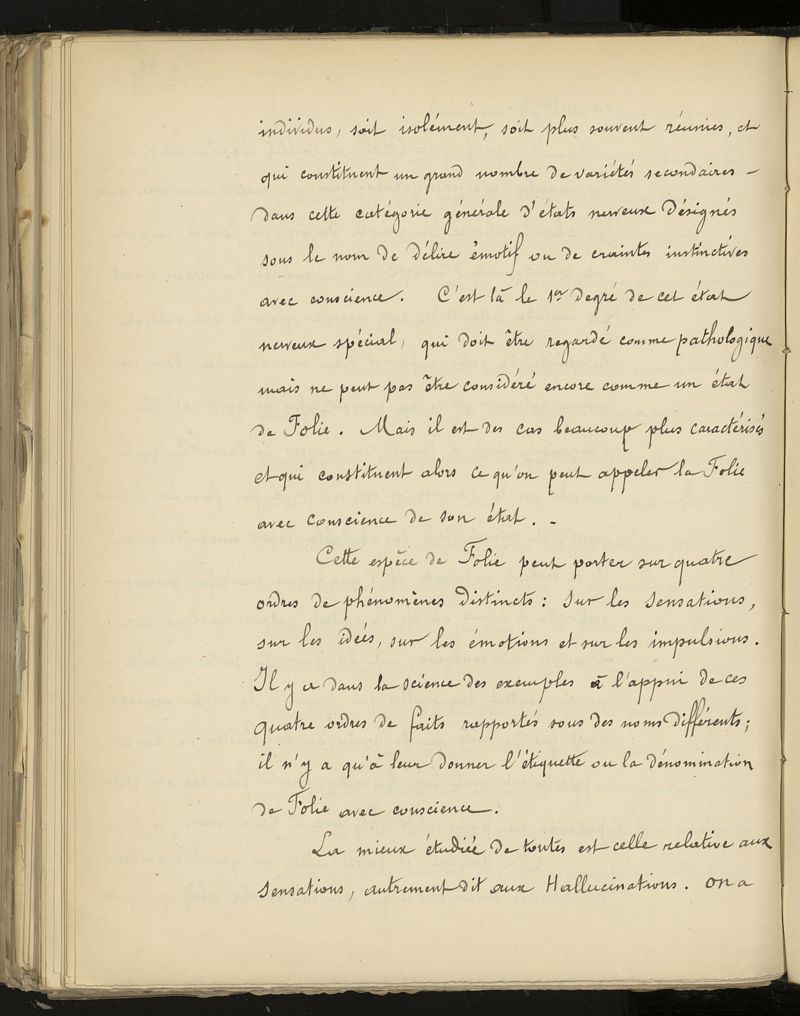 individus, soit isolément, soit plus souvent réunies, et
qui constituent un grand nombre de variétés secondaires –
Dans cette catégorie générale d'états nerveux Désignés
sous le nom de Délire émotif ou de craintes instinctives
avec conscience. C'est là le 1er Degré de cet état
nerveux spécial, qui doit être regardé comme pathologique
mais ne peut pas être considéré encore comme un état
de Folie. Mais il est des cas beaucoup plus caractérisés
et qui constituent alors ce qu'on peut appeler la Folie
avec conscience de son état. –
Cette espèce de Folie peut porter sur quatre
ordres de phénomènes Distincts : Sur les Sensations,
sur les idées, sur les émotions et sur les impulsions.
Il y a dans la science des exemples à l'appui de ces
quatre ordres de faits rapportés sous des noms différents ;
il n'y a qu'à leur donner l'étiquette ou la dénomination
de Folie avec conscience.
La mieux étudiée de toutes est celle relative aux
Sensations, autrement dit aux Hallucinations. On a